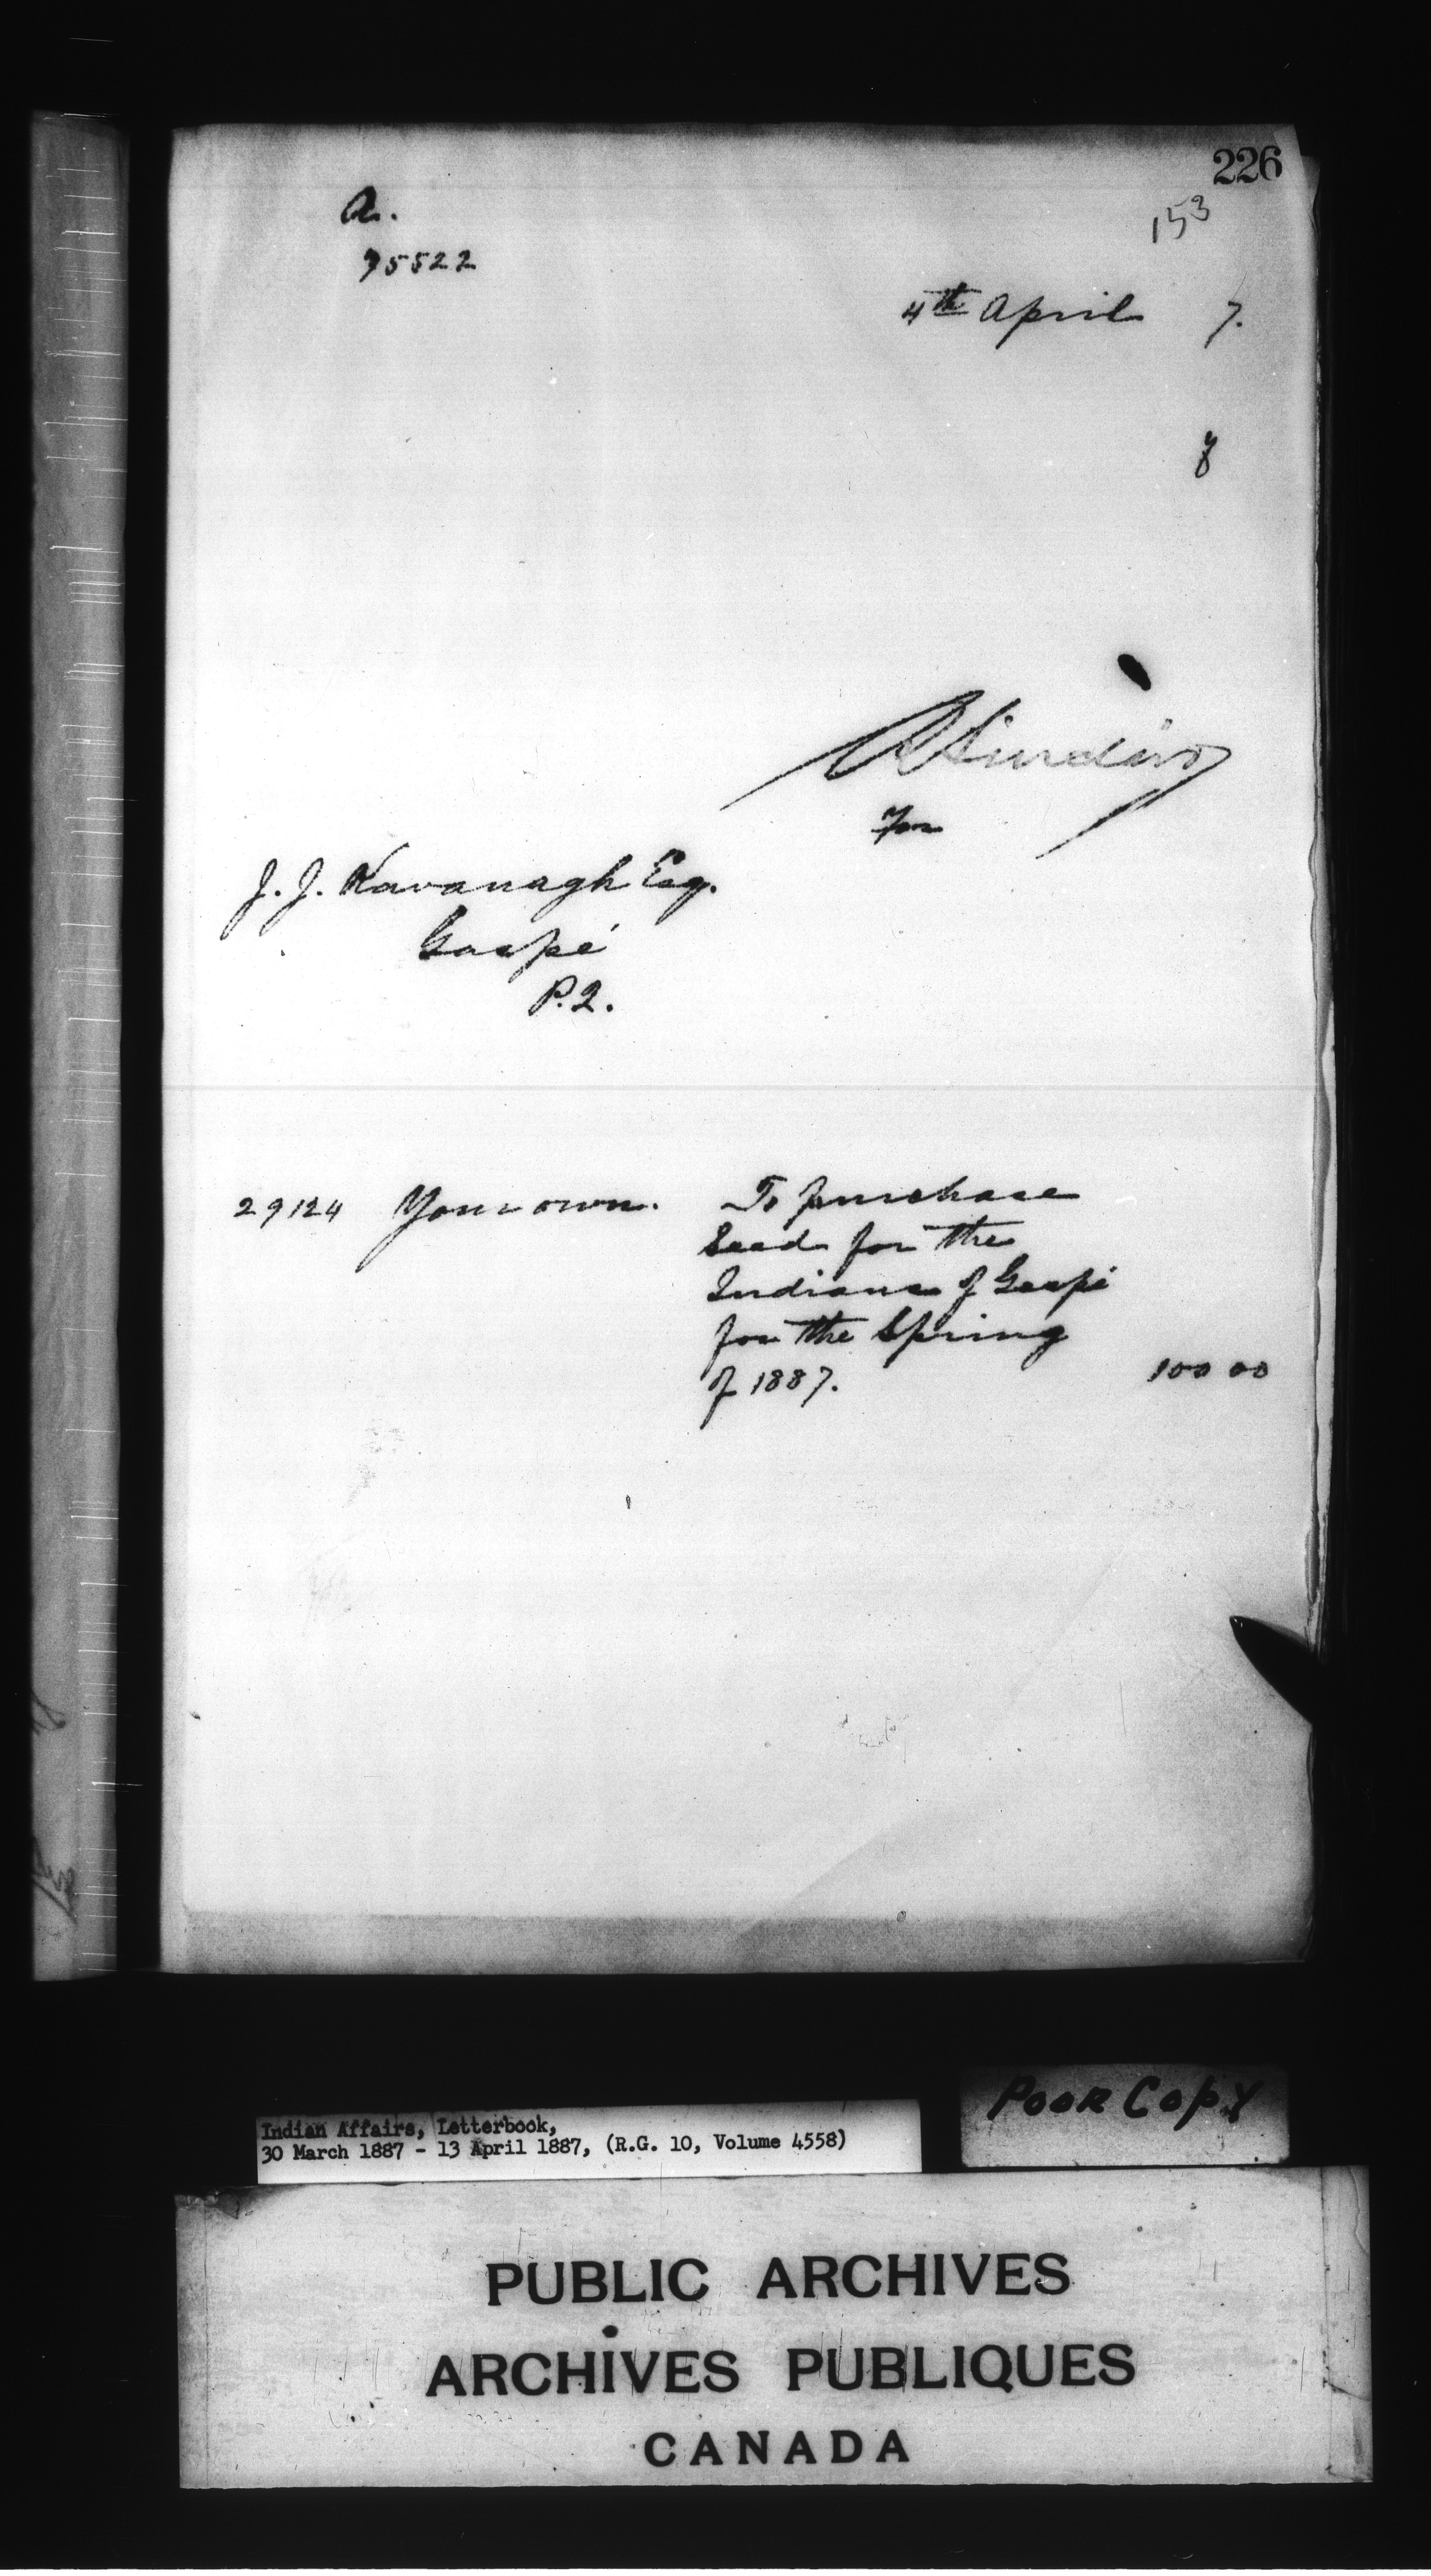 226
153
A.
75522
4th April 7.
For
J. J. Kavanagh Esq.
Gaspé
P.Q.
29124 Your own. To purchase
Seed for the
Indians of Gaspé
for the Spring
of 1887. 100 00
Poor Copy
Indian Affairs, Letterbook,
30 March 1887 - 13 April 1887, (R.G. 10, Volume 4558)
PUBLIC ARCHIVES
ARCHIVES PUBLIQUES
CANADA